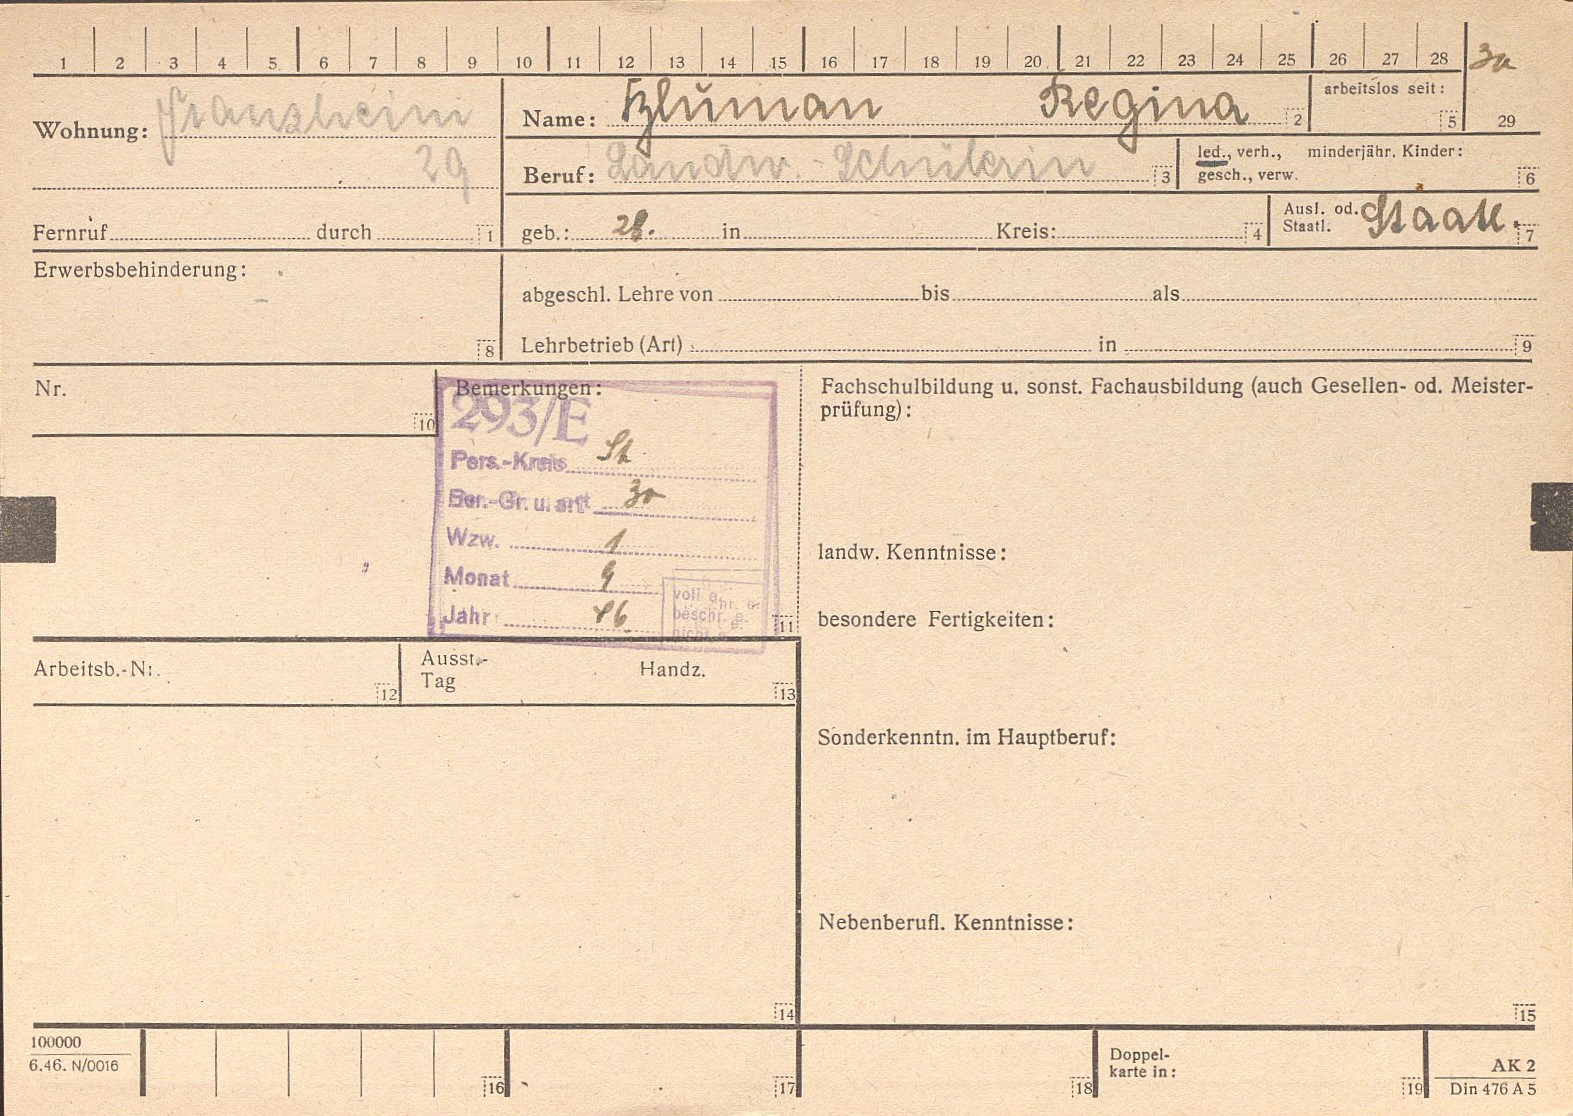 1 2 3 4 5 6 7 8 9 10 11 12 13 14 15 16 17 18 19 20 21 22 23 24 25 26 27 28 3a
Wohnung: Franzheim
29
Name: Bluman Regina 2
arbeitslos seit: 5
29
Beruf: Landw. Schülerin 3
led., verh., minderjähr. Kinder:
gesch., verw. 6
Fernruf durch 1
geb.: 28. in Kreis: 4
Ausl. od.
Staatl. Staatl. 7
Erwerbsbehinderung:
8
abgeschl. Lehre von bis als
Lehrbetrieb (Art) in 9
Nr.
10
Bemerkungen:
293/E
Pers.-Kreis St
Ber.-Gr. u. art 3a
Wzw. 1
Monat 9
Jahr 46
voll e.
beschr. e.
nicht e.
11
Fachschulbildung u. sonst. Fachausbildung (auch Gesellen- od. Meister-
prüfung):
landw. Kenntnisse:
besondere Fertigkeiten:
Arbeitsb.-Nr.
12
Ausst.-
Tag
Handz.
13
Sonderkenntn. im Hauptberuf:
Nebenberufl. Kenntnisse:
14
15
100000
6.46. N/0016
16
17
18
Doppel-
karte in:
19
AK 2
Din 476 A 5